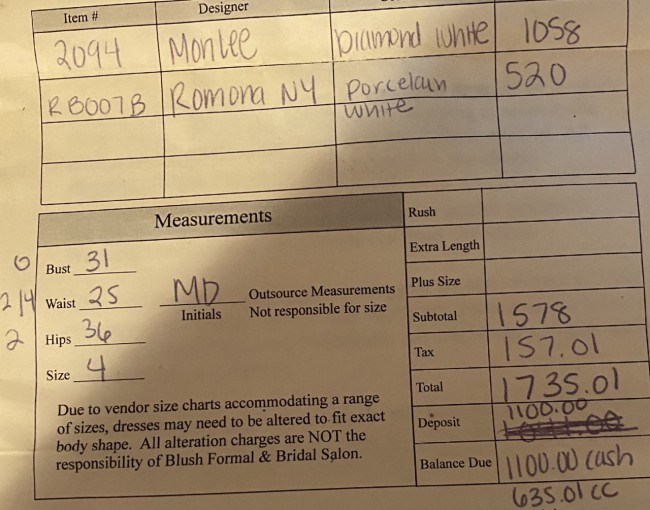 Item # Designer
2094 Monlee Diamond White 1058
RB007B Romona NY Porcelain White 520
Measurements
Rush
Extra Length
Plus Size
Subtotal 1578
Tax 157.01
Total 1735.01
Deposit 1100.00
Balance Due 1100.00 cash
635.01 CC
0 Bust 31
2/4 Waist 25
2 Hips 36
Size 4
MD Outsource Measurements
Initials Not responsible for size
Due to vendor size charts accommodating a range
of sizes, dresses may need to be altered to fit exact
body shape. All alteration charges are NOT the
responsibility of Blush Formal & Bridal Salon.